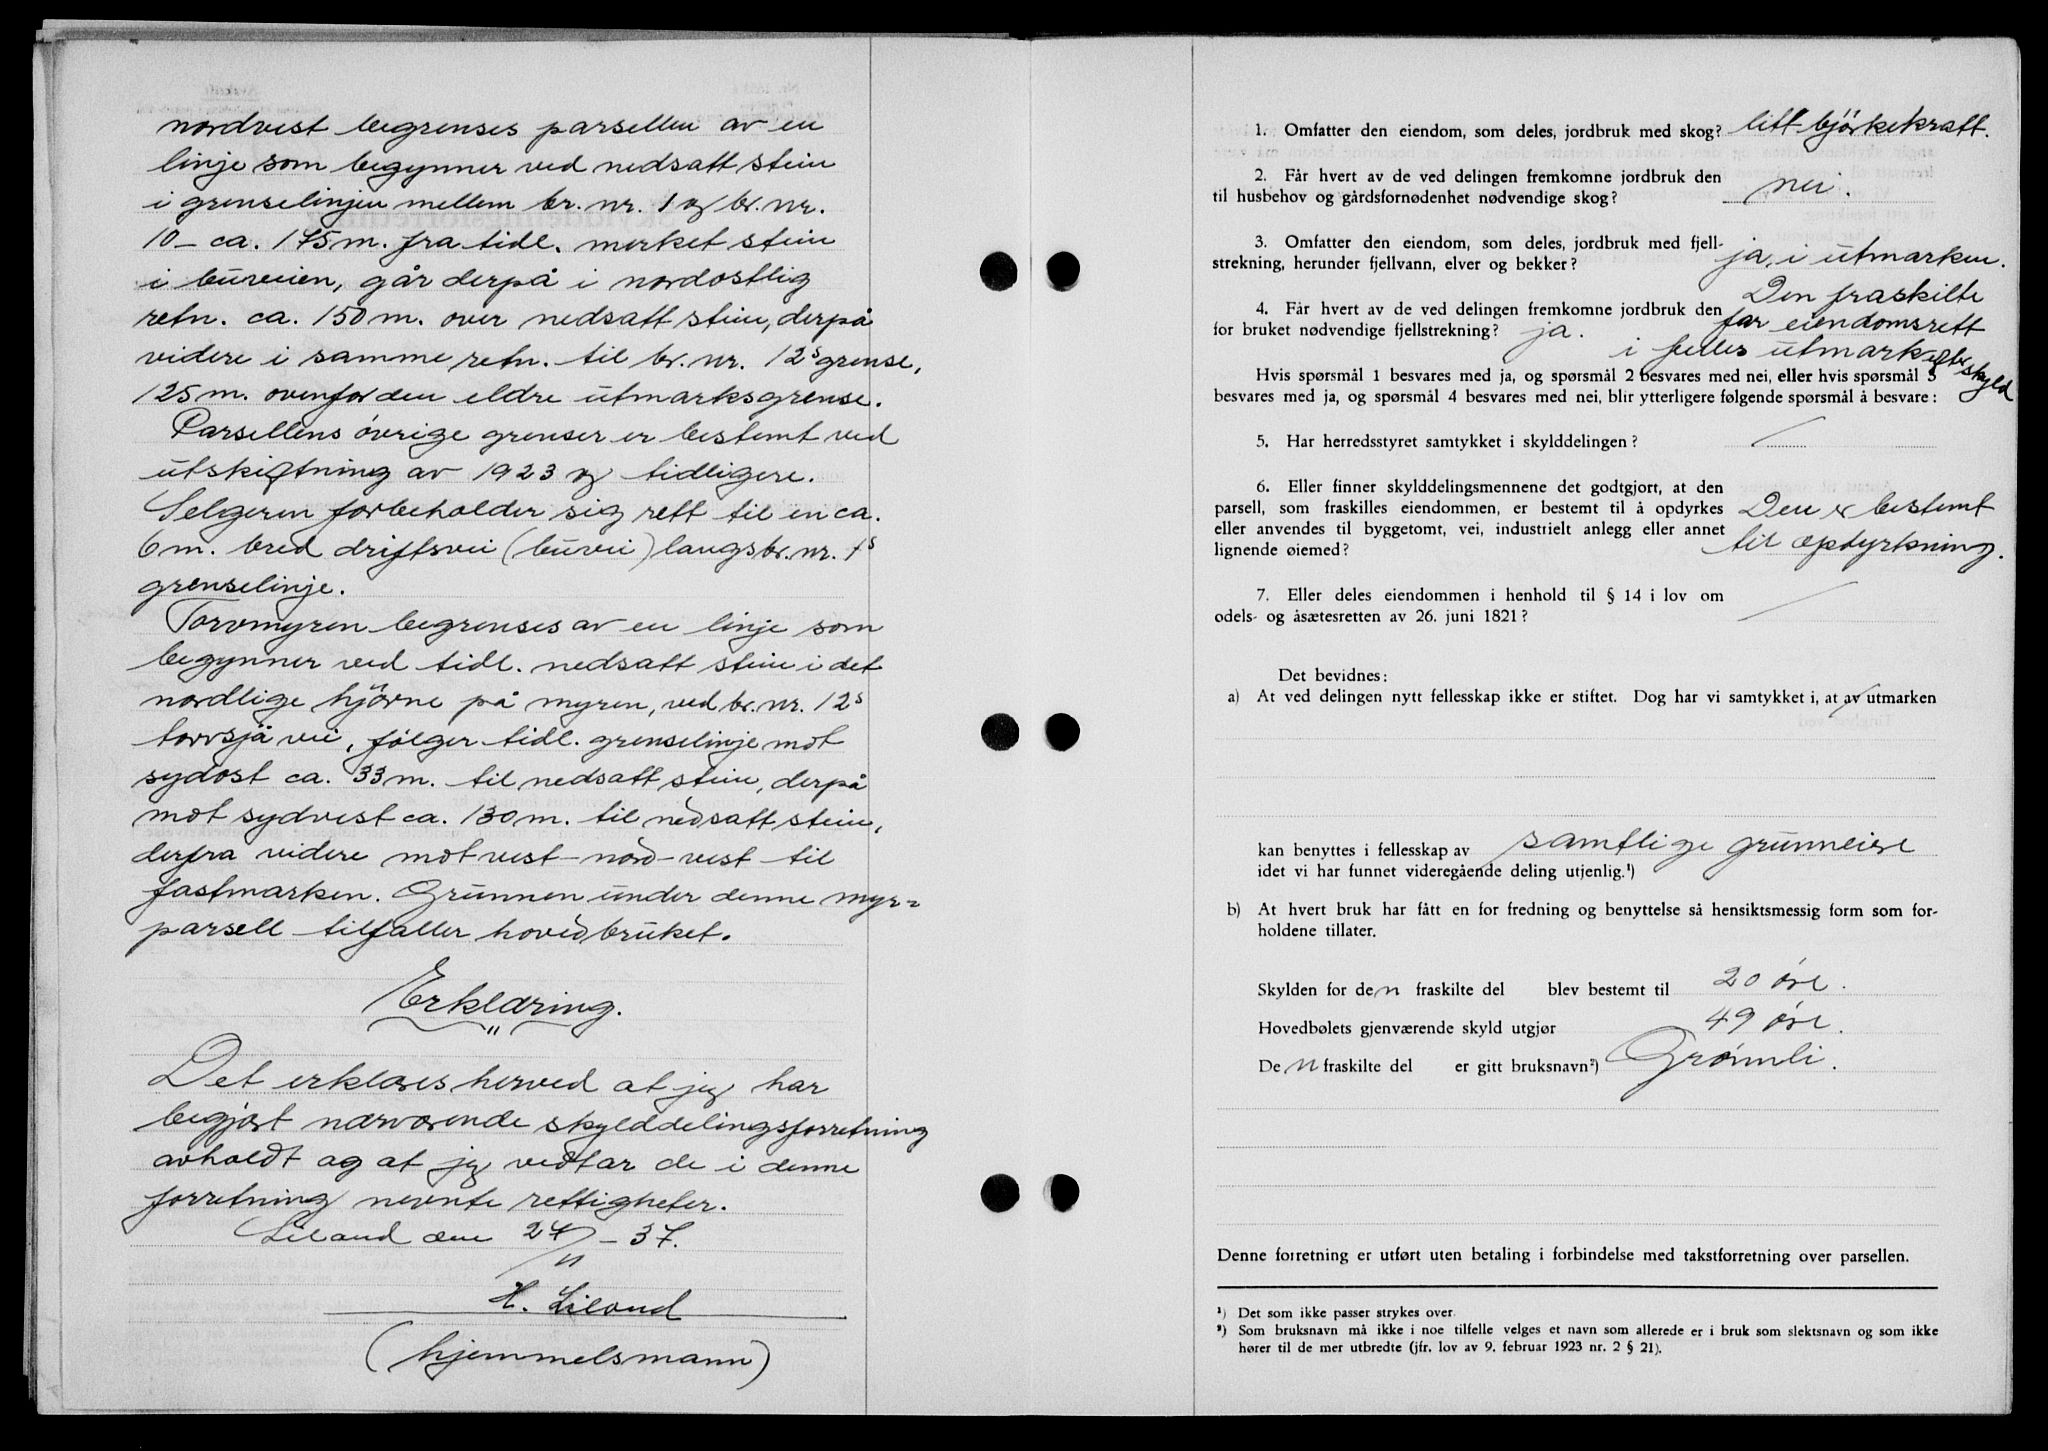 nordvest begrenses parsellen av en
linje som begynner ved nedsatt stein
i grenselinjen mellem br. nr. 1 og br. nr.
10 – ca. 175 m. fra tidl. merket stein
i buveien, går derpå i nordostlig
retn. ca. 150 m. over nedsatt stein, derpå
videre i samme retn. til br. nr. 12s grense,
125 m. ovenfor den eldre utmarksgrense.
Parsellens övrige grenser er bestemt ved
utskiftning av 1923 og tidligere.
Selgeren forbeholder sig rett til en ca.
6 m. bred driftsvei (buvei) langs br. nr. 1s
grenselinje.
Torvmyren begrenses av en linje som
begynner ved tidl. nedsatt stein i det
nordlige hjörne på myren, ved br. nr. 12s
torvsjå vei, fölger tidl. grenselinje mot
sydost ca. 33 m. til nedsatt stein, derpå
mot sydvest ca. 130 m. til nedsatt stein,
derfra videre mot vest-nord-vest til
fastmarken. Grunnen under denne myr=
parsell tilfaller hovedbruket.
Erklæring.
Det erklæres herved at jeg har
begjært nærværende skylddelingsforretning
avholdt og at jeg vedtar de i denne
forretning nevnte rettigheter.
Liland den 24/11 – 37.
H. Liland
(hjemmelsmann)
1. Omfatter den eiendom, som deles, jordbruk med skog? litt björkekratt.
2. Får hvert av de ved delingen fremkomne jordbruk den
til husbehov og gårdsfornødenhet nødvendige skog? nei.
3. Omfatter den eiendom, som deles, jordbruk med fjell-
strekning, herunder fjellvann, elver og bekker? ja, i utmarken.
4. Får hvert av de ved delingen fremkomne jordbruk den
for bruket nødvendige fjellstrekning? ja. Den fraskilte
får eiendomsrett
i felles utmark efter skyld
Hvis spørsmål 1 besvares med ja, og spørsmål 2 besvares med nei, eller hvis spørsmål 3
besvares med ja, og spørsmål 4 besvares med nei, blir ytterligere følgende spørsmål å besvare:
5. Har herredsstyret samtykket i skylddelingen? /
6. Eller finner skylddelingsmennene det godtgjort, at den
parsell, som fraskilles eiendommen, er bestemt til å opdyrkes
eller anvendes til byggetomt, vei, industrielt anlegg eller annet
lignende øiemed? Den er bestemt
til opdyrkning.
7. Eller deles eiendommen i henhold til § 14 i lov om
odels- og åsætesretten av 26. juni 1821? /
Det bevidnes:
a) At ved delingen nytt fellesskap ikke er stiftet. Dog har vi samtykket i, at av utmarken
kan benyttes i fellesskap av samtlige grunneiere
idet vi har funnet videregående deling utjenlig.¹)
b) At hvert bruk har fått en for fredning og benyttelse så hensiktsmessig form som for-
holdene tillater.
Skylden for den fraskilte del blev bestemt til 20 øre.
Hovedbølets gjenværende skyld utgjør 49 øre.
Den fraskilte del er gitt bruksnavn²) Grønnli.
Denne forretning er utført uten betaling i forbindelse med takstforretning over parsellen.
¹) Det som ikke passer strykes over.
²) Som bruksnavn må ikke i noe tilfelle velges et navn som allerede er i bruk som slektsnavn og som ikke
hører til de mer utbredte (jfr. lov av 9. februar 1923 nr. 2 § 21).